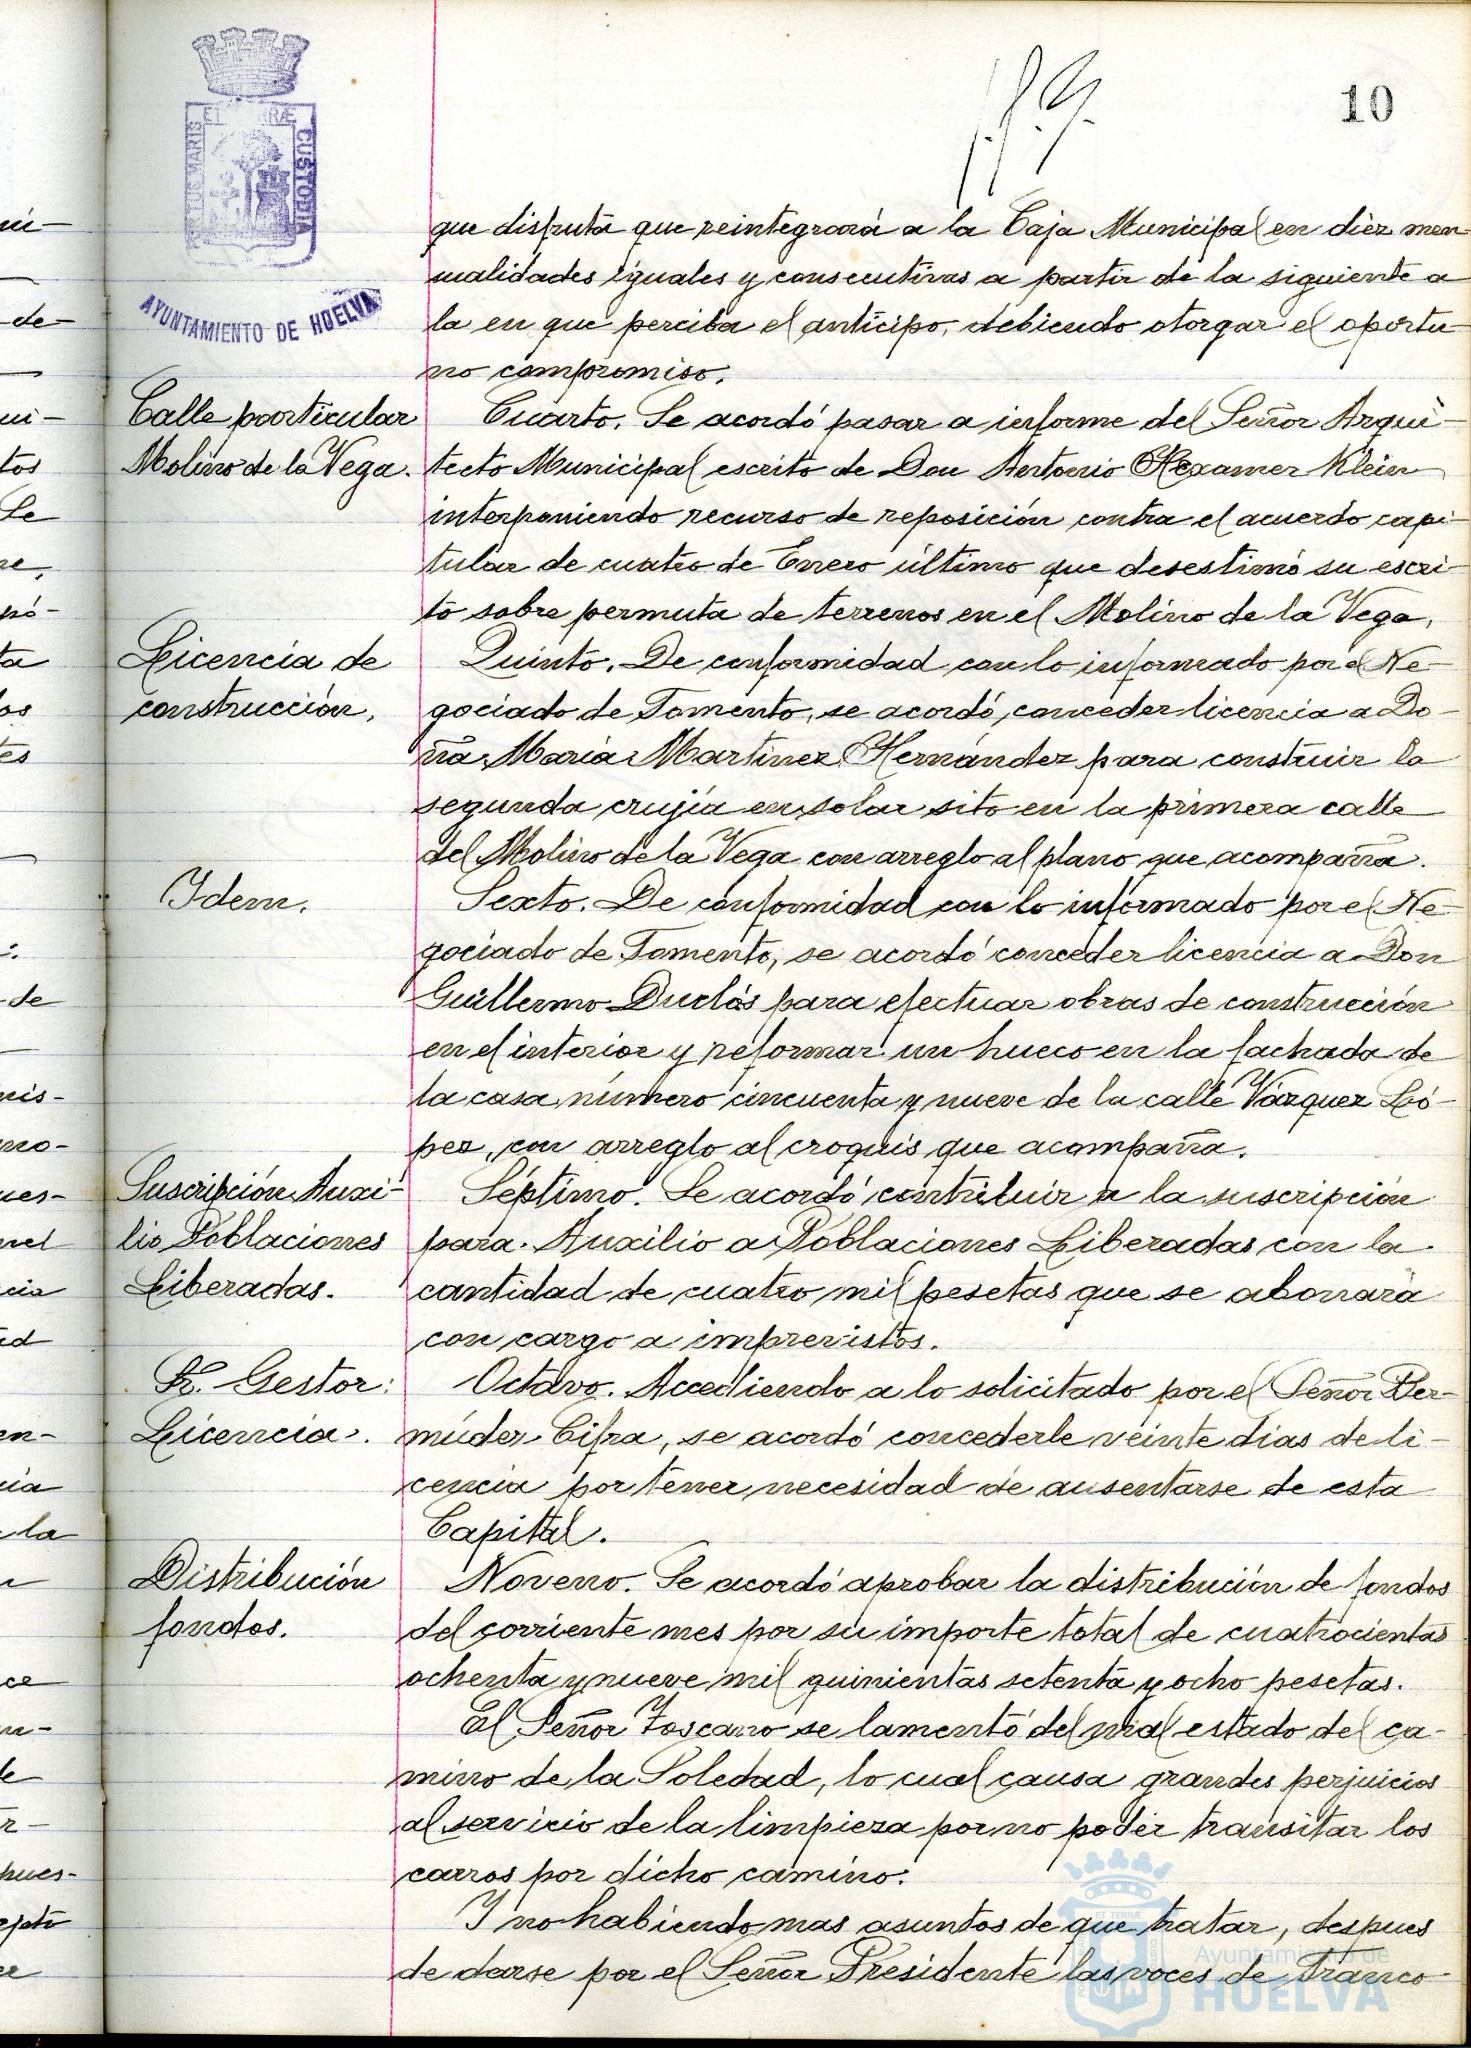 10
PORTUS MARIS ET TERRÆ CUSTODIA
AYUNTAMIENTO DE HUELVA
que disfruta que reintegrará a la Caja Municipal en diez men-
sualidades iguales y consecutivas a partir de la siguiente a
la en que perciba el anticipo, debiendo otorgar el oportu-
no compromiso.
Calle particular
Molino de la Vega.
Cuarto. Se acordó pasar a informe del Señor Arqui-
tecto Municipal escrito de Don Antonio Hexamer Klein
interponiendo recurso de reposición contra el acuerdo capi-
tular de cuatro de Enero último que desestimó su escri-
to sobre permuta de terrenos en el Molino de la Vega.
Licencia de
construcción.
Quinto. De conformidad con lo informado por el Ne-
gociado de Fomento, se acordó conceder licencia a Do-
ña María Martinez Hernández para construir la
segunda crujía en solar sito en la primera calle
del Molino de la Vega con arreglo al plano que acompaña.
Idem.
Sexto. De conformidad con lo informado por el Ne-
gociado de Fomento, se acordó conceder licencia a Don
Guillermo Duclós para efectuar obras de construcción
en el interior y reformar un hueco en la fachada de
la casa número cincuenta y nueve de la calle Vázquez Ló-
pez, con arreglo al croquis que acompaña.
Suscripción Auxi-
lio Poblaciones
Liberadas.
Séptimo. Se acordó contribuir a la suscripción
para Auxilio a Poblaciones Liberadas con la
cantidad de cuatro mil pesetas que se abonará
con cargo a imprevistos.
Sr. Gestor:
Licencia.
Octavo. Accediendo a lo solicitado por el Señor Ber-
múdez Cifra, se acordó concederle veinte dias de li-
cencia por tener necesidad de ausentarse de esta
Capital.
Distribución
fondos.
Noveno. Se acordó aprobar la distribución de fondos
del corriente mes por su importe total de cuatrocientas
ochenta y nueve mil quinientas setenta y ocho pesetas.
El Señor Toscano se lamentó del mal estado del ca-
mino de la Soledad, lo cual causa grandes perjuicios
al servicio de la limpieza por no poder transitar los
carros por dicho camino.
Y no habiendo mas asuntos de que tratar, despues
de darse por el Señor Presidente las voces de Franco
Ayuntamiento de
HUELVA